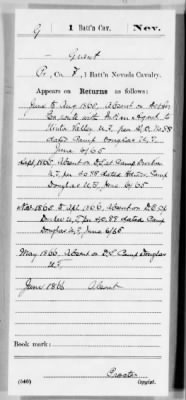 G | 1 Batt'n Cav. | Nev.
Grant
P., Co. F, 1 Batt'n Nevada Cavalry.
Appears on Returns as follows:
June to Aug 1865, Absent on Det.
Service with Indian Agent to
Uinta Valley U.T. per S.O. No 88
dated Camp Douglas U.T.
June 6/65
Sept. 1865, Absent on D.S. at Camp
U.T. per 88 dated
Douglas U.T., June 6/65
Nov 1865 to Apl 1866, Absent on D.S. at
U.T. per 88 dated Camp
Douglas U.T., June 6/65
May 1866, Absent on D.S. Camp Douglas
U.T.
June 1866 Absent
Book mark:
(546) Copyist.